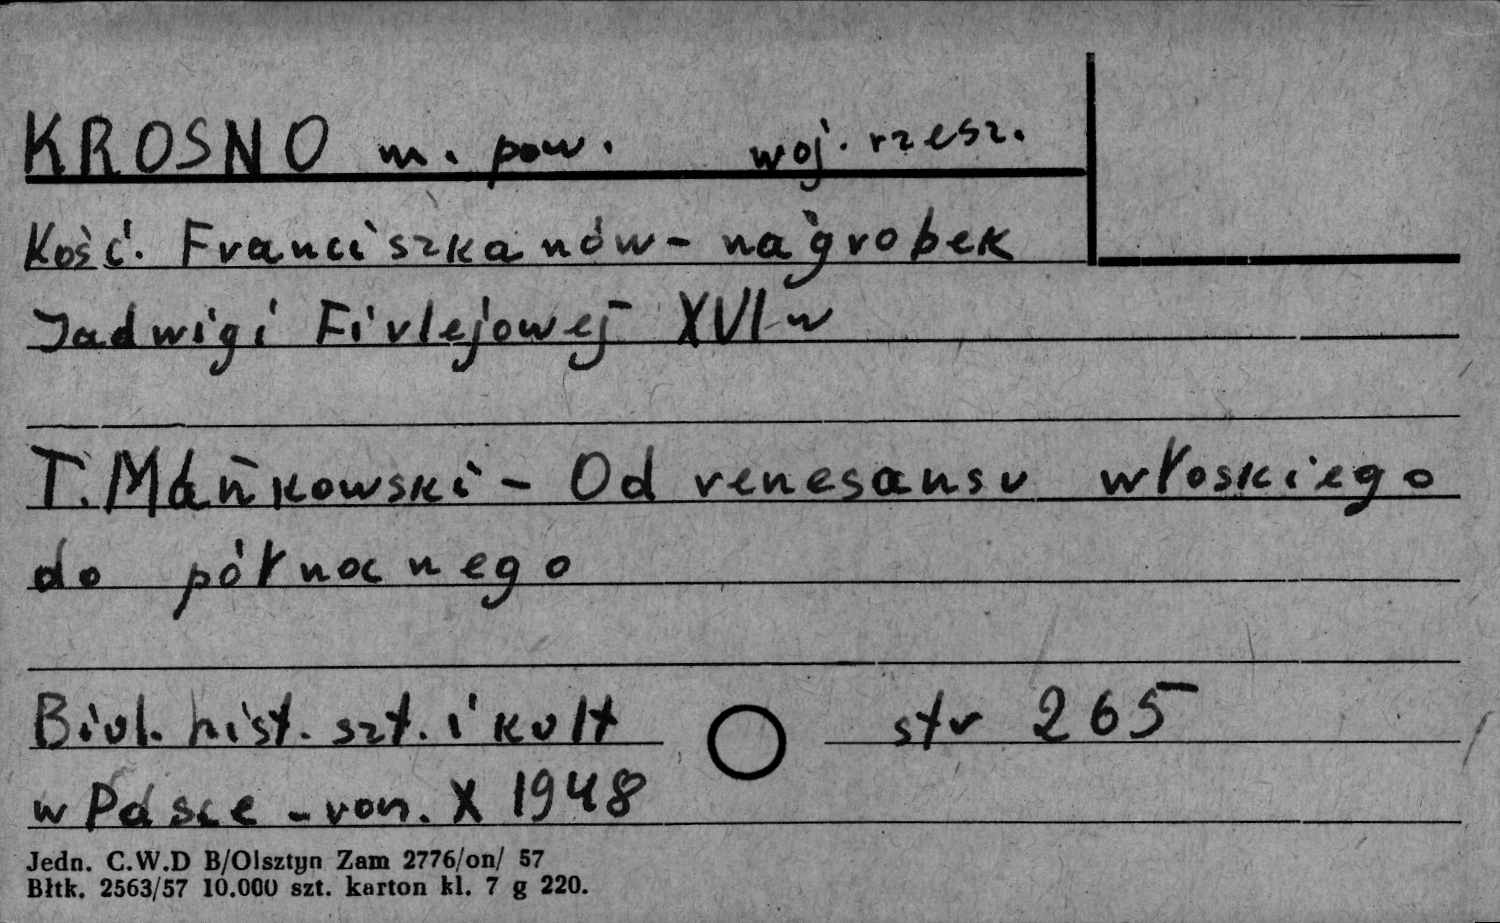 KROSNO m. pow. woj. rzesz.
Kość. Franciszkanów - nagrobek
Jadwigi Firlejowej XVI w
T. Mańkowski - Od renesansu włoskiego
do północnego
Biul. hist. szt. i kult str 265
w Polsce - ron. X 1948
Jedn. C.W.D B/Olsztyn Zam 2776/on/ 57
Błtk. 2563/57 10.000 szt. karton kl. 7 g 220.